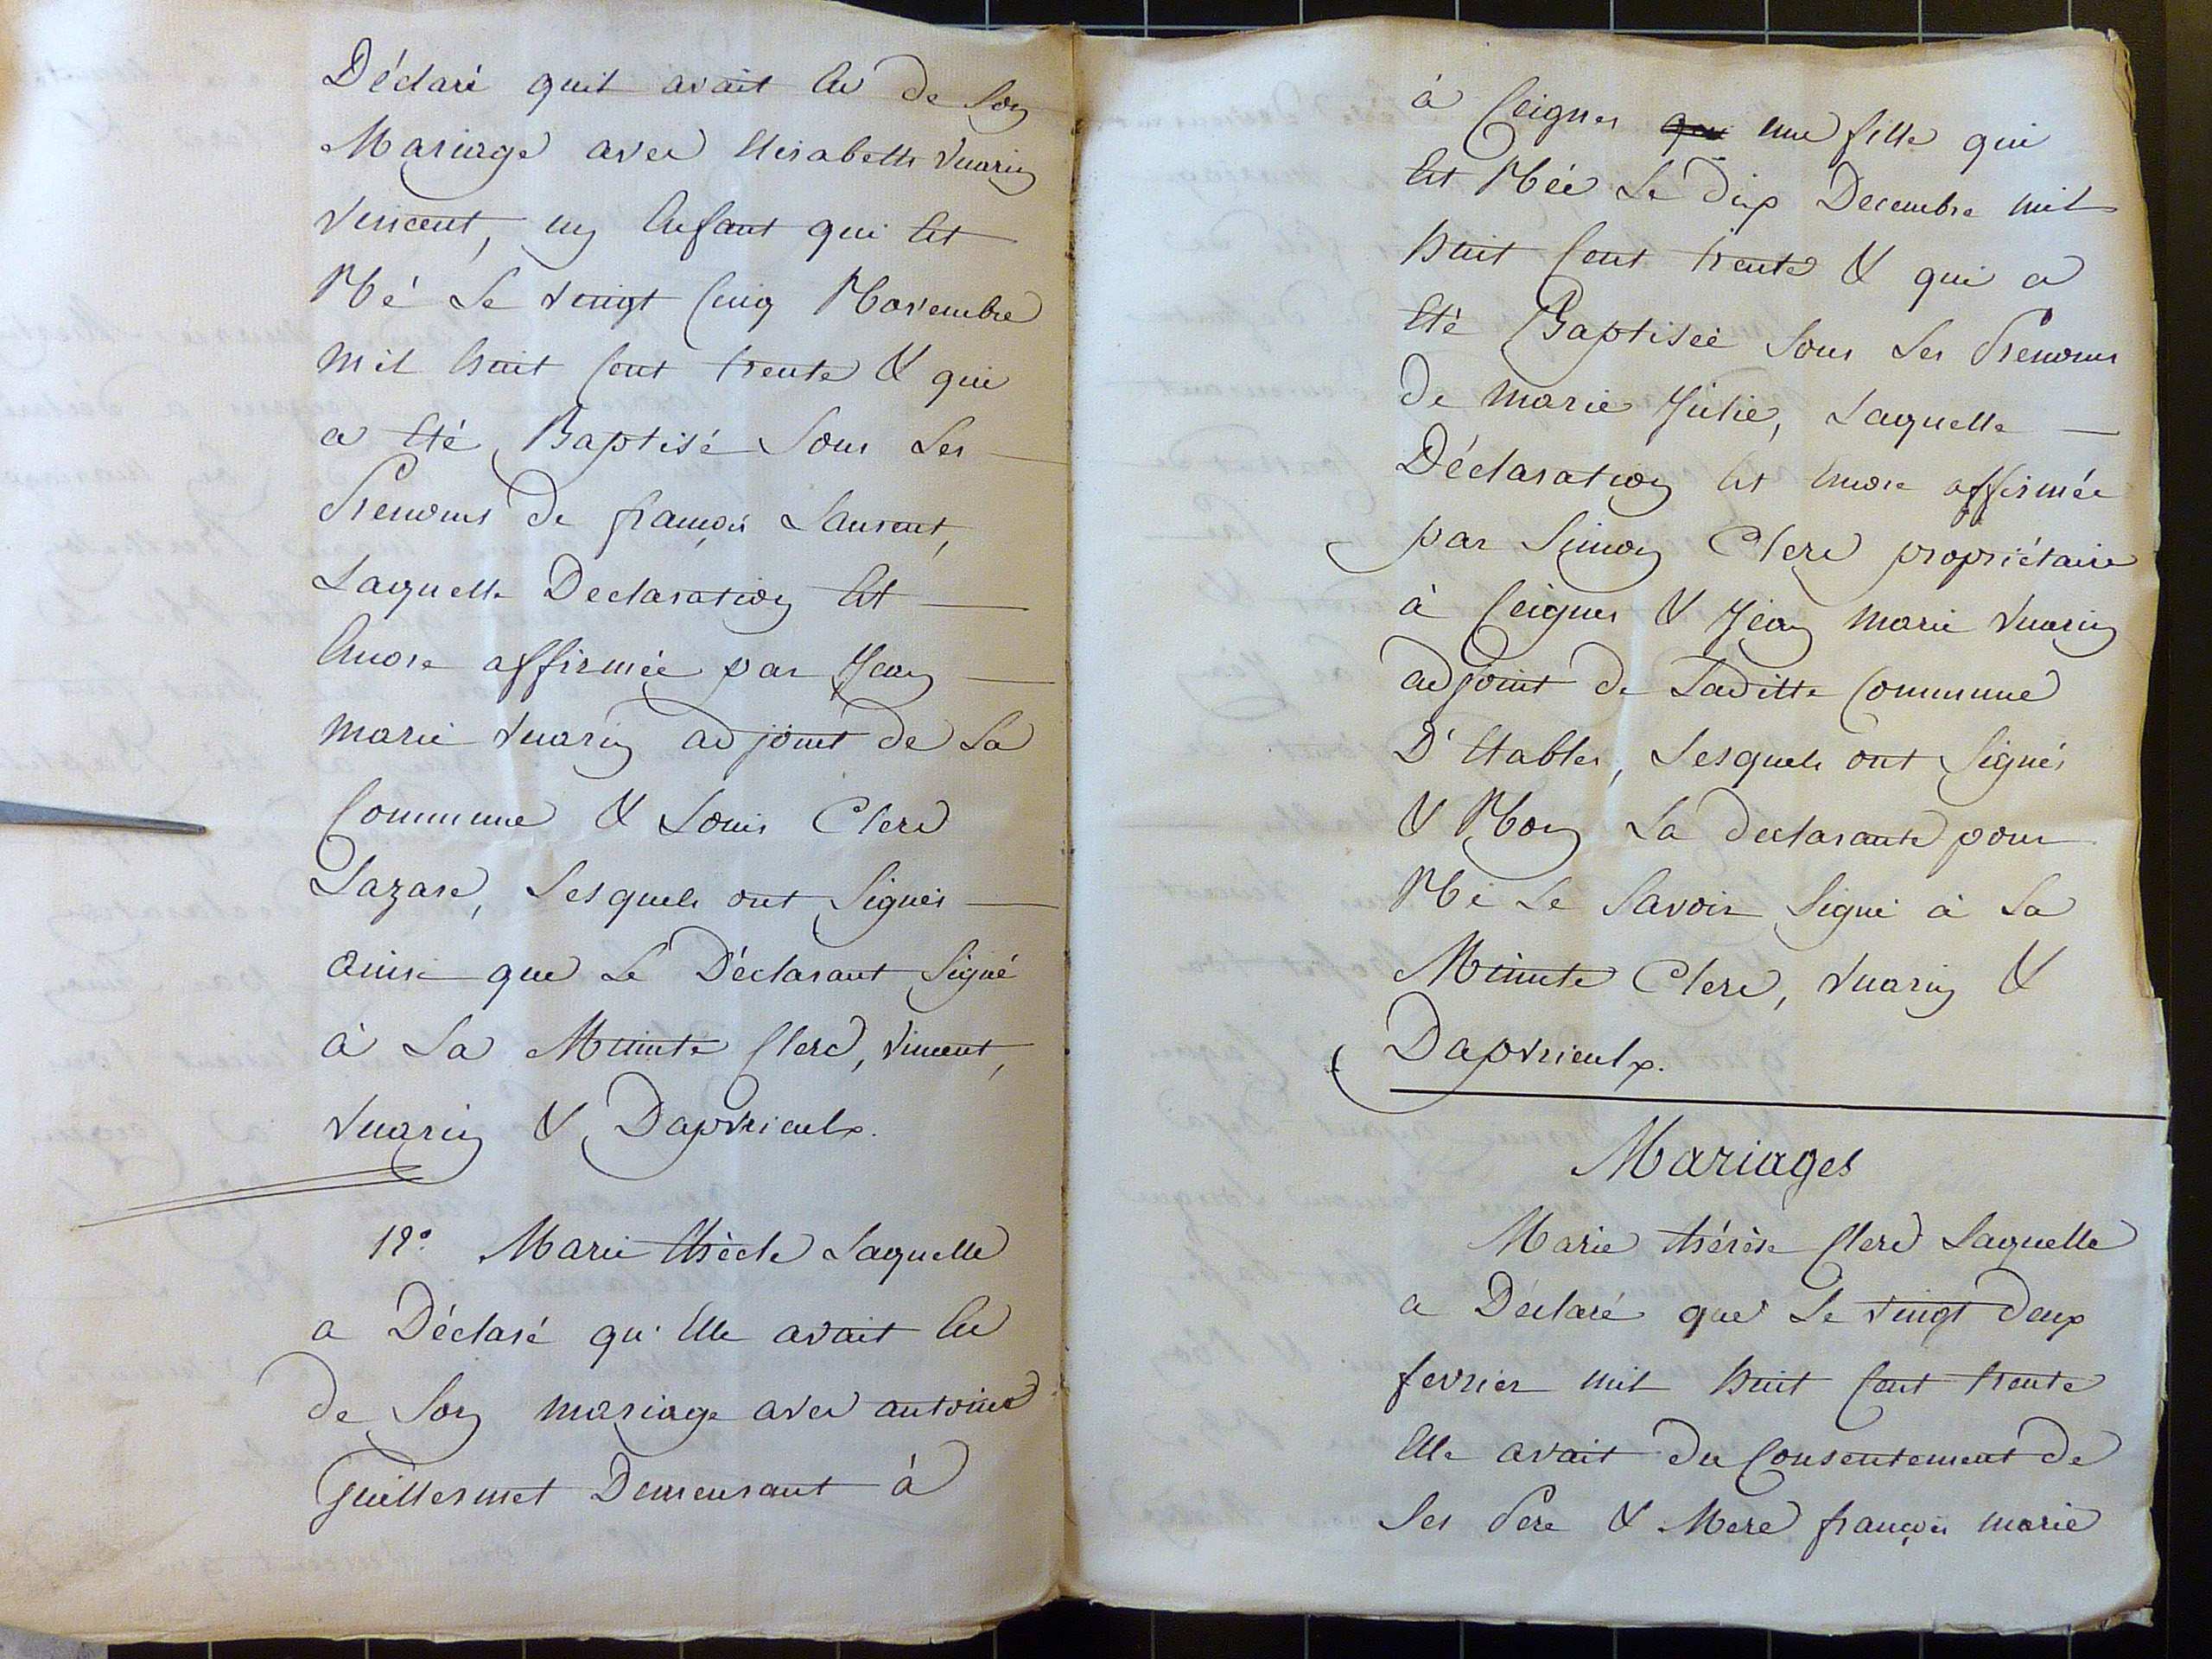 Déclaré quil avait Eu de Son
Mariage avec Elisabeth Vuarin
Vincent, un Enfant qui Est
Né Le vingt Cinq Novembre
mil huit Cent trente & qui
a Eté Baptisé Sous Les
Prenoms de françois Laurent,
Laquelle Declaration Est
Encore affirmée par Jean
Marie Vuarin adjoint de La
Commune & Louis Clerc
Lazare, Lesquels ont Signés
ainsi que Le Déclarant Signé
à La Minute Clerc, Vincent,
Vuarin & Dapvrieulx.
12° Marie thècle Laquelle
a Déclaré qu'Elle avait Eu
de Son mariage avec antoine
Guillermet Demeurant à
à Ceignes une fille qui
Est Née Le dix Decembre mil
huit Cent trente & qui a
Eté Baptisée Sous Les Prenoms
de Marie Julie, Laquelle
Déclaration Est Encore affirmée
par Simon Clerc propriétaire
à Ceignes & Jean Marie Vuarin
adjoint de Laditte Commune
D'Etables, Lesquels ont Signés
& Non La declarante pour
Ne Le Savoir Signé à La
Minute Clerc, Vuarin &
Dapvrieulx.
Mariages
Marie thérèse Clerc Laquelle
a Déclaré que Le vingt deux
fevrier mil huit Cent trente
Elle avait du Consentement de
Ses Pere & Mere françois marie